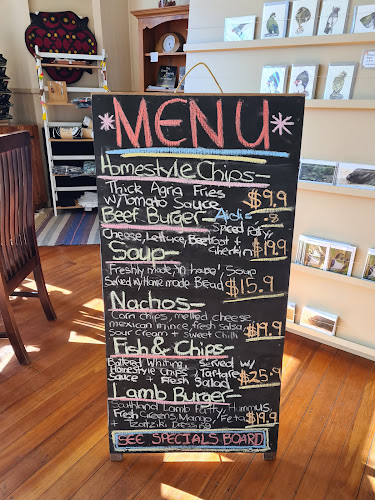 * MENU *
Homestyle Chips-
Thick Agria Fries
w/Tomato Sauce $9.9
Beef Burger-
Spiced Patty,
Cheese, Lettuce, Beetroot +
Gherkin $19.9
Soup-
Freshly made 'in house', Soup
Served w/ Home made Bread $15.9
Nachos-
Corn chips, melted cheese
mexican mince, fresh salsa,
Sour Cream + sweet Chilli $19.9
Fish & Chips-
Battered Whiting, Served w/
Homestyle Chips, Tartare
Sauce + Fresh Salad $25.9
Lamb Burger-
Southland Lamb Patty, Hummus,
Fresh Greens, Mango, Feta,
+ Tzatziki Dressing $19.9
SEE SPECIALS BOARD